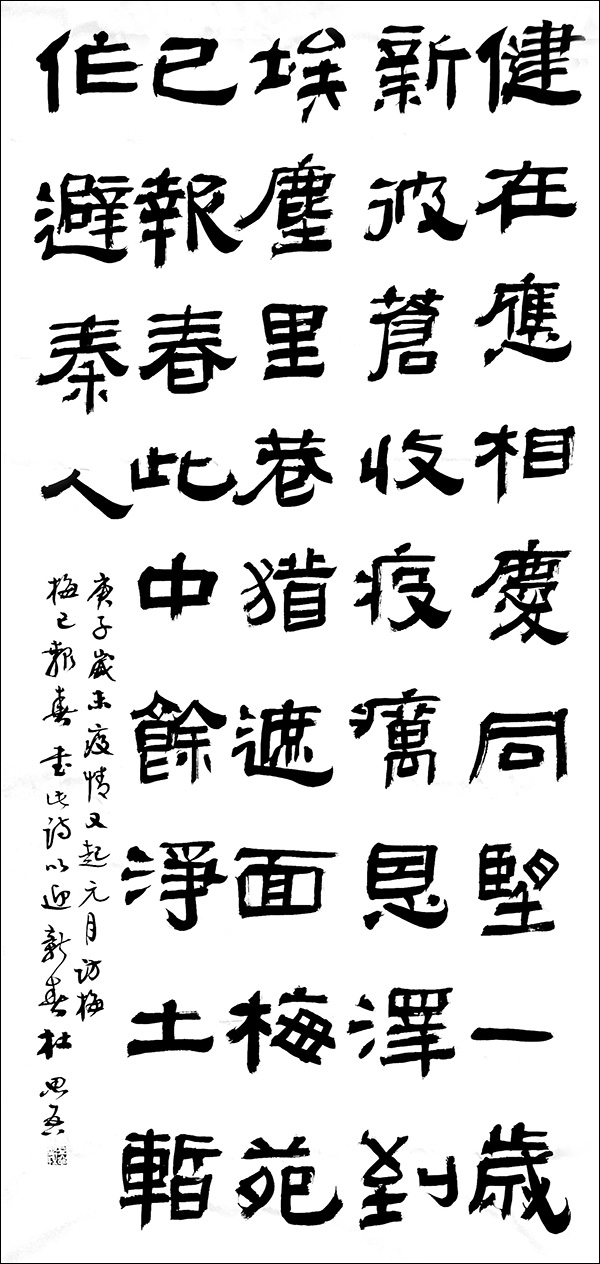 健在應相慶同朢一歲
新彼蒼收疫癘恩澤到
埃塵里巷猶遮面梅苑
已報春此中餘淨土暫
作避秦人
庚子歲末疫情又起元月訪梅
梅已報春書此詩以迎新春杜思吾